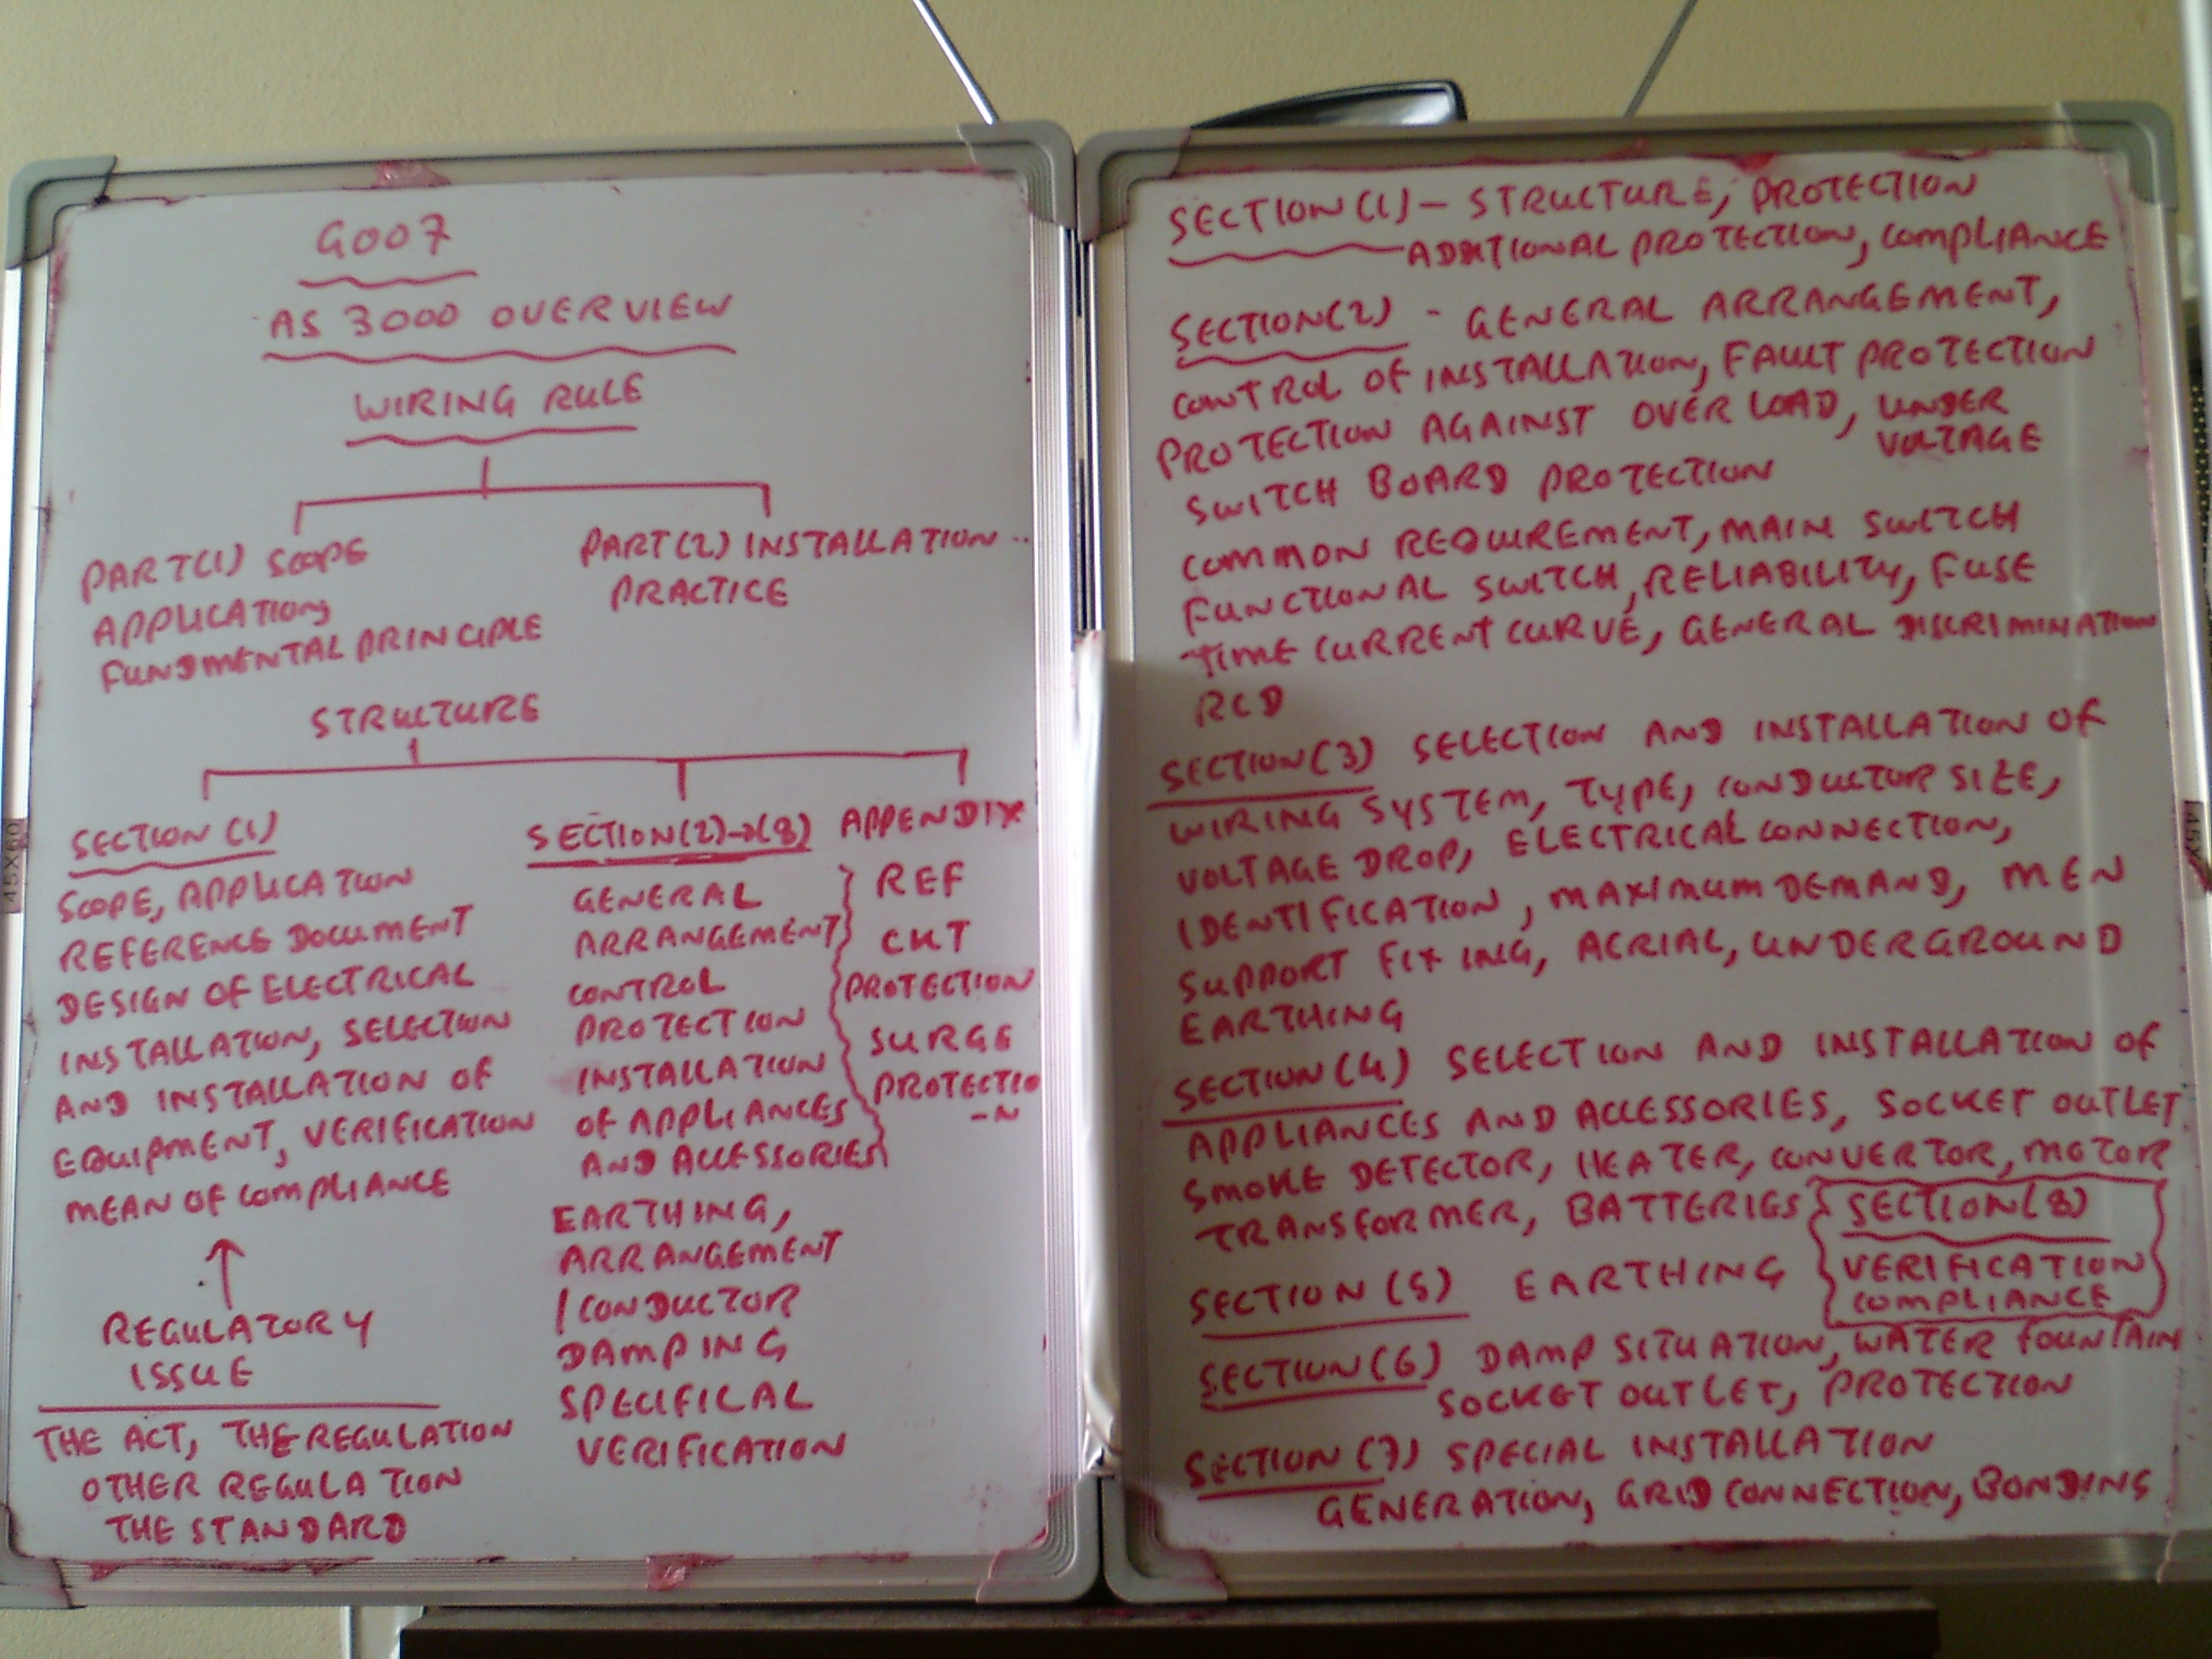 G007
AS 3000 OVERVIEW
WIRING RULE
PART(1) SCOPE
APPLICATION
FUNDMENTAL PRINCIPLE
PART(2) INSTALLATION
PRACTICE
STRUCTURE
SECTION (1)
SCOPE, APPLICATION
REFERENCE DOCUMENT
DESIGN OF ELECTRICAL
INSTALLATION, SELECTION
AND INSTALLATION OF
EQUIPMENT, VERIFICATION
MEAN OF COMPLIANCE
REGULATORY
ISSUE
THE ACT, THE REGULATION
OTHER REGULATION
THE STANDARD
SECTION(2)→(8)
GENERAL
ARRANGEMENT
CONTROL
PROTECTION
INSTALLATION
OF APPLIANCES
AND ACCESSORIES
EARTHING,
ARRANGEMENT
/CONDUCTOR
DAMPING
SPECIFICAL
VERIFICATION
APPENDIX
REF
CKT
PROTECTION
SURGE
PROTECTIO
-N
SECTION(1) - STRUCTURE, PROTECTION
ADDITIONAL PROTECTION, COMPLIANCE
SECTION(2) - GENERAL ARRANGEMENT,
CONTROL OF INSTALLATION, FAULT PROTECTION
PROTECTION AGAINST OVER LOAD, UNDER
VOLTAGE
SWITCH BOARD PROTECTION
COMMON REQUIREMENT, MAIN SWITCH
FUNCTIONAL SWITCH, RELIABILITY, FUSE
TIME CURRENT CURVE, GENERAL DISCRIMINATION
RCD
SECTION(3) SELECTION AND INSTALLATION OF
WIRING SYSTEM, TYPE, CONDUCTOR SIZE,
VOLTAGE DROP, ELECTRICAL CONNECTION,
IDENTIFICATION, MAXIMUM DEMAND, MEN
SUPPORT FIXING, AERIAL, UNDERGROUND
EARTHING
SECTION(4) SELECTION AND INSTALLATION OF
APPLIANCES AND ACCESSORIES, SOCKET OUTLET
SMOKE DETECTOR, HEATER, CONVERTOR, MOTOR
TRANSFORMER, BATTERIES
SECTION(8)
VERIFICATION
COMPLIANCE
SECTION (5) EARTHING
SECTION(6) DAMP SITUATION, WATER FOUNTAIN
SOCKET OUTLET, PROTECTION
SECTION (7) SPECIAL INSTALLATION
GENERATION, GRID CONNECTION, BONDING